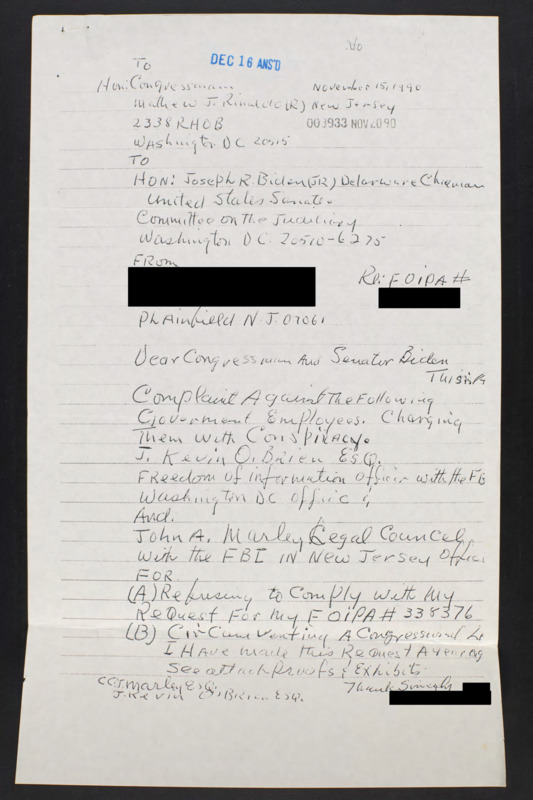 No
TO
DEC 16 ANS'D
Hon: Congressman November 15, 1990
Mathew J. Rinaldo (R) New Jersey
2338 RHOB 003933 NOV 20 90
Washington DC 20515
TO
HON: Joseph R. Biden (JR) Delaware Chieman
United States Senate.
Committee on the Judiciary
Washington D.C. 20510-6275
FROM
Re: FOIPA #
Plainfield N.J. 07061
Dear Congressman And Senator Biden
This is A
Complaint Against The Following
Goverment Employees. Charging
Them with Conspiracy.
J. Kevin O'Brien ESQ.
Freedom of information officer with the FB
Washington DC office
And.
John A. Marley Legal Councel
with the FBI IN New Jersey office
FOR
(A) Refusing to Comply with My
Request For My FOIPA # 338376
(B) Circumventing A Congressional
I Have made this Request A year Ag
See attach Proofs & Exhibits
CC J. Marley ESQ. Thank
J. Kevin O'Brien ESQ.